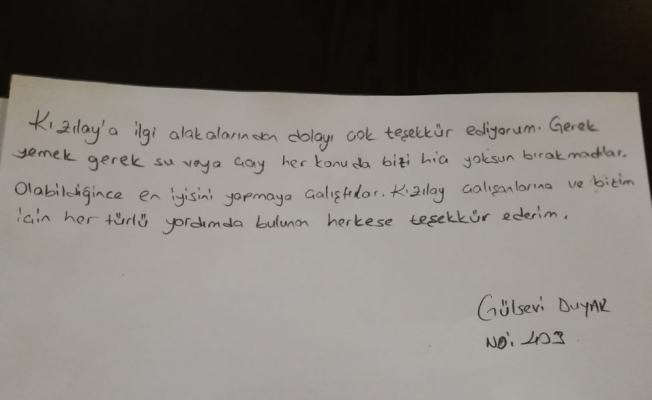 Kızılay'a ilgi alakalarından dolayı çok teşekkür ediyorum. Gerek
yemek gerek su veya çay her konuda bizi hiç yoksun bırakmadılar.
Olabildiğince en iyisini yapmaya çalıştılar. Kızılay çalışanlarına ve bizim
için her türlü yardımda bulunan herkese teşekkür ederim.
Gülsevi DUYAR
NO: 403